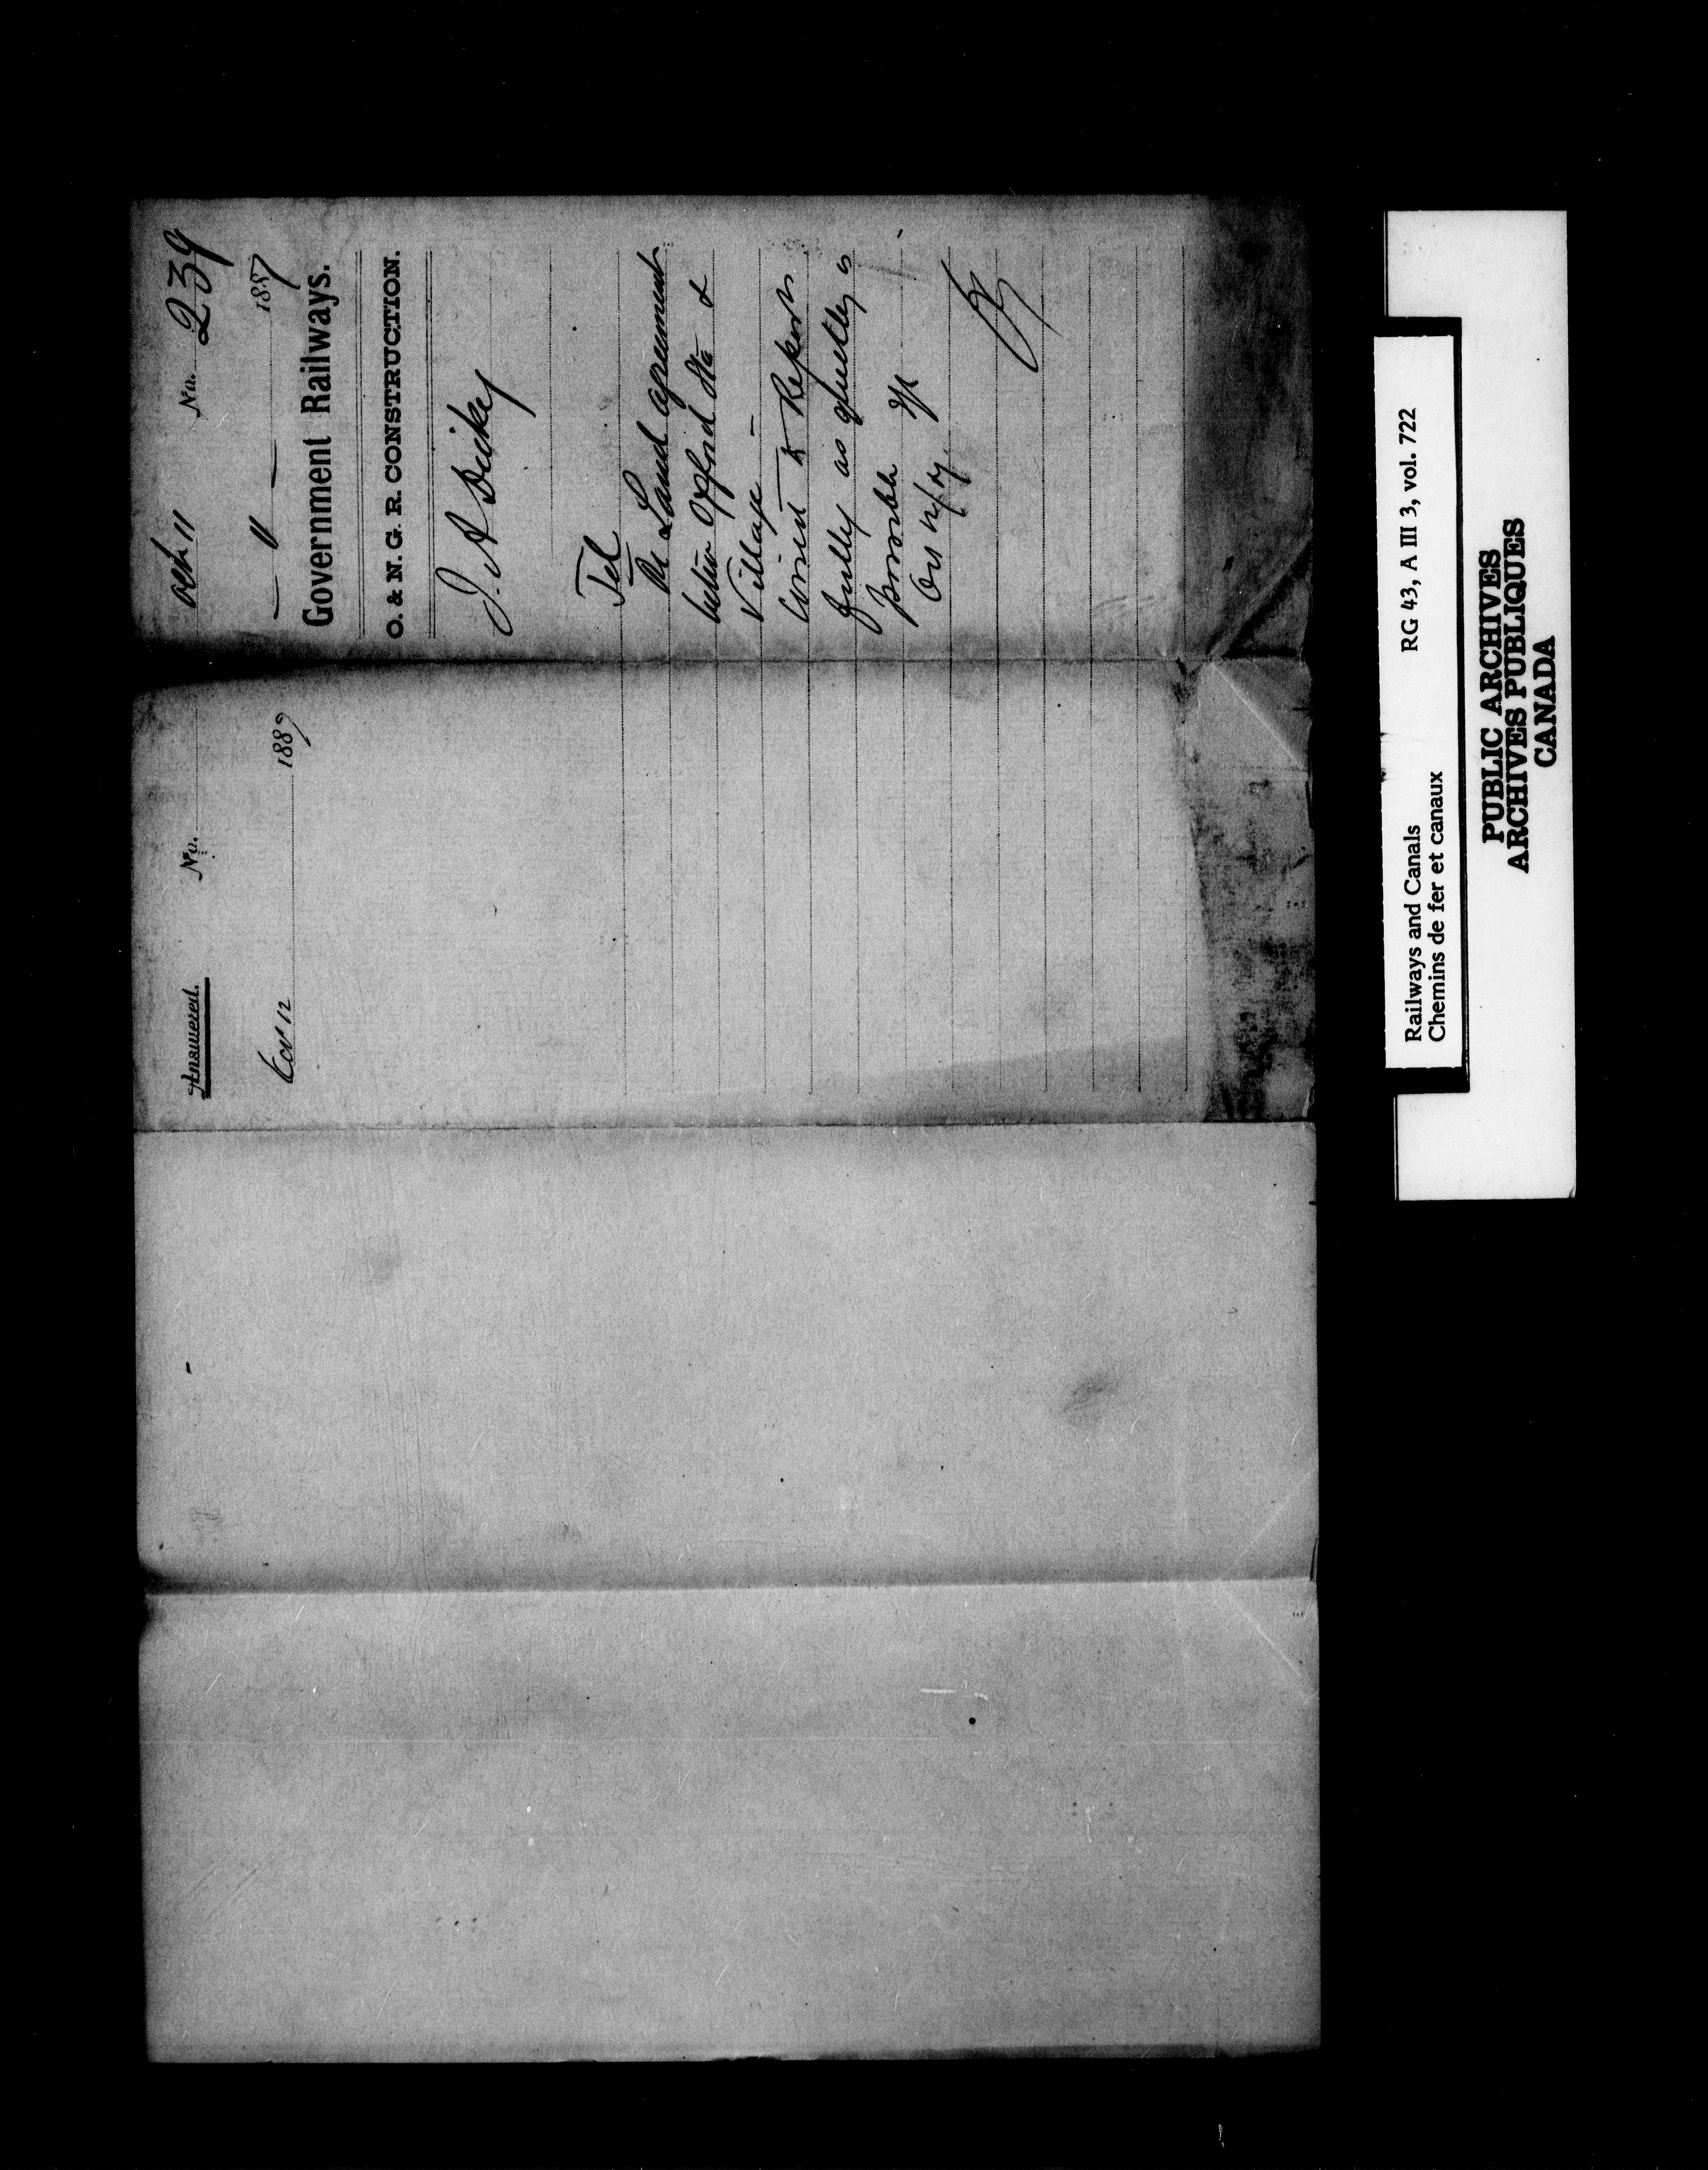 Oct 11 No. 239
— " — 1887
Government Railways.
O. & N. G. R. CONSTRUCTION.
J. A Dickey
Tel
Re Land agreement
betwn Oxford Sta &
Village –
to Report
fully as quietly as
possible
Answered. No.
Oct 12 1887
Railways and Canals RG 43, A III 3, vol. 722
Chemins de fer et canaux
PUBLIC ARCHIVES
ARCHIVES PUBLIQUES
CANADA